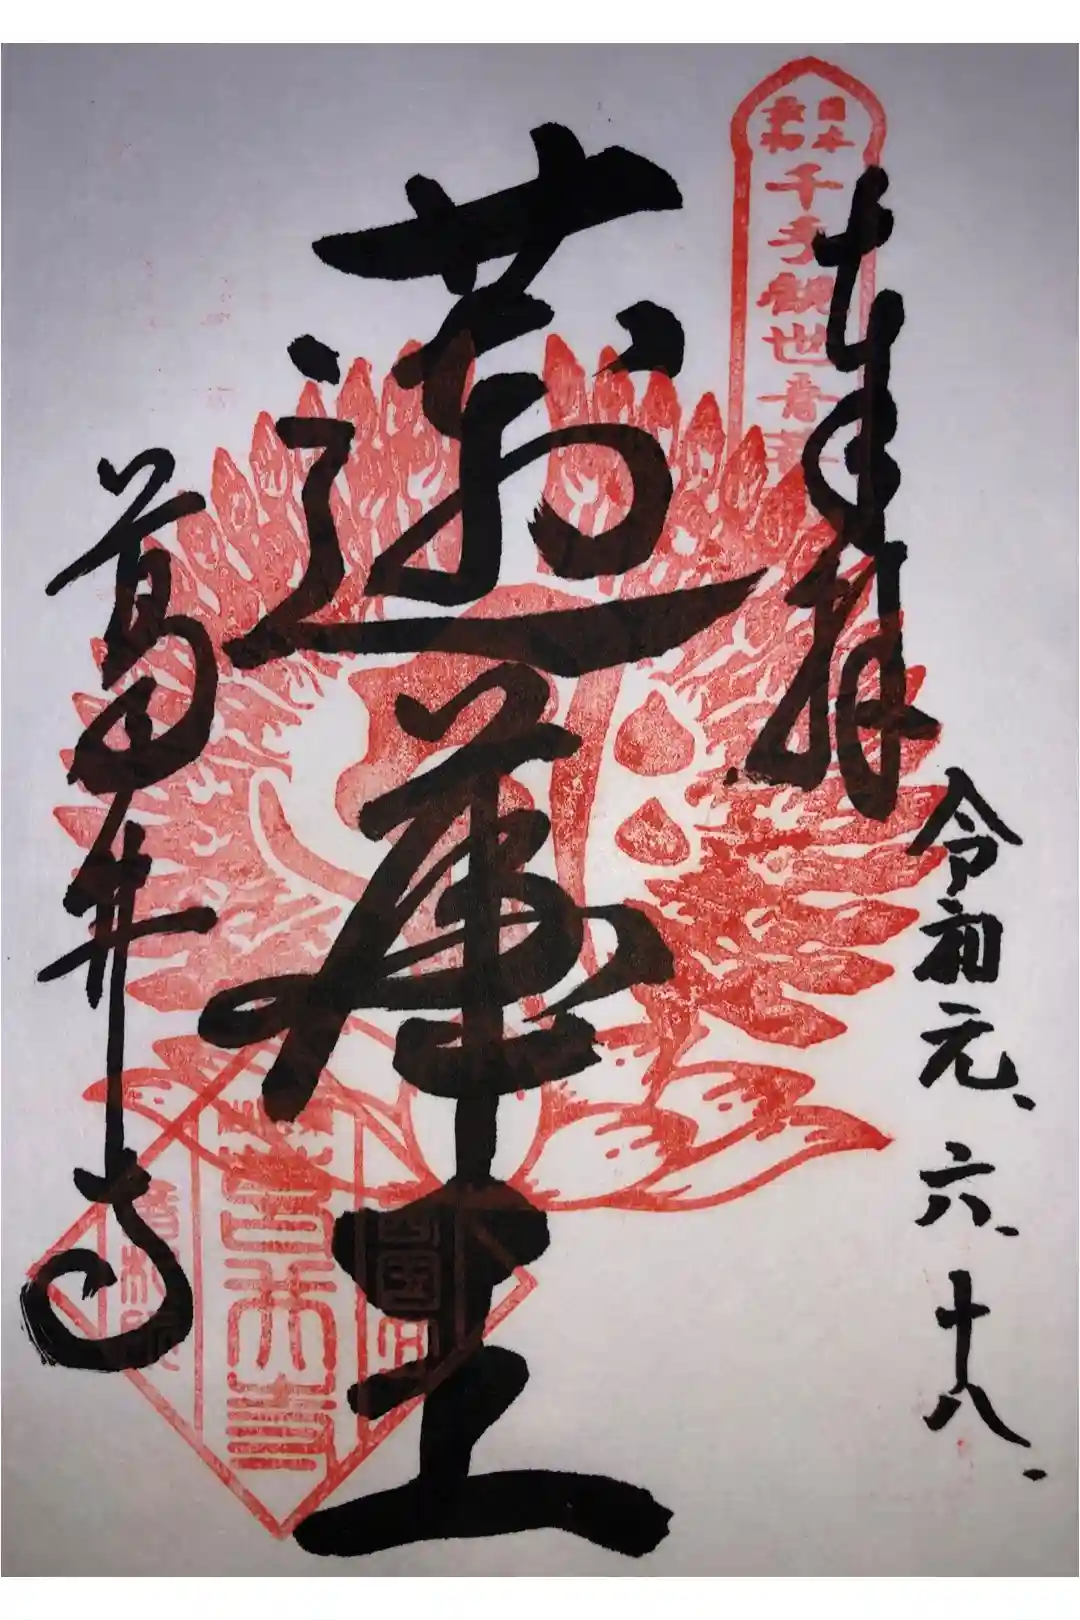 奉拝
令和元、六、十八、
日本
最初
千手観世音菩
蓮華王
葛井寺